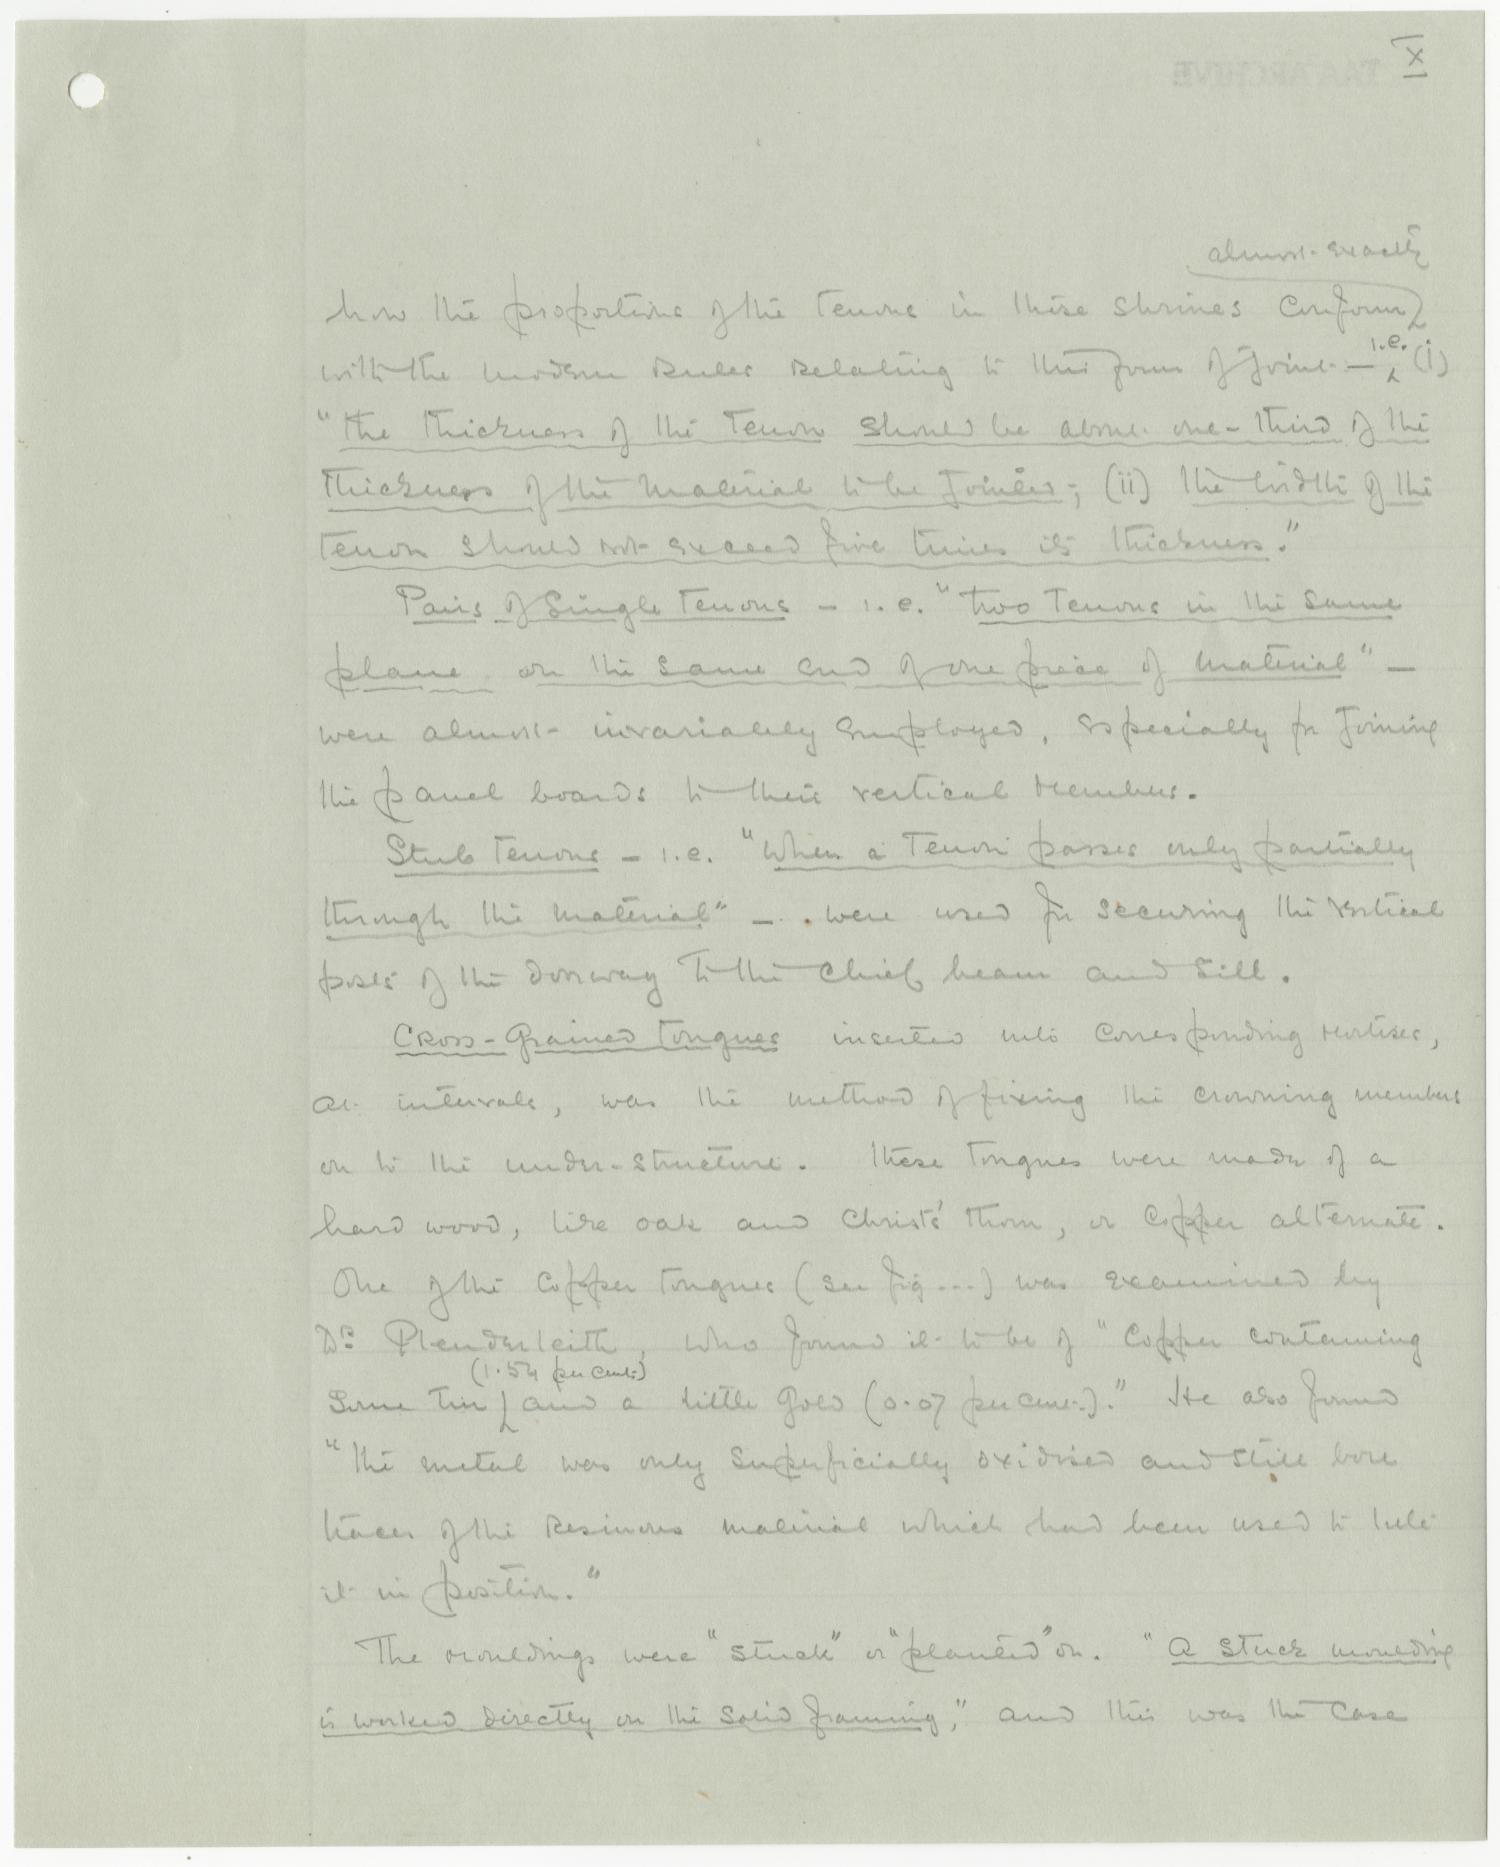 X
TAA ARCHIVE
almost exactly
how the proportions of the tenons in these shrines conform
with the modern rules relating to this form of joint — i.e. (i)
"the thickness of the tenon should be about one-third of the
thickness of the material to be joined; (ii) the width of the
tenon should not exceed five times its thickness."
Pairs of Single Tenons – i.e. "two tenons in the same
plane on the same end of one piece of material" –
were almost invariably employed, especially for joining
the panel boards to their vertical members.
Stub Tenons – i.e. "when a tenon passes only partially
through the material" – were used for securing the vertical
posts of the doorway to the chief beam and sill.
Cross-Grained Tongues inserted into corresponding mortises,
at intervals, was the method of fixing the crowning members
on to the under-structure. These tongues were made of a
hard wood, like oak and Christs' thorn, or copper alternate.
One of the copper tongues (see fig ...) was examined by
Dr Plenderleith, who found it to be of "copper containing
(1.54 per cent:)
some tin and a little gold (0.07 per cent.)." He also found
"the metal was only superficially oxidised and still bore
traces of the resinous material which had been used to lute
it in position."
The mouldings were "stuck" or "planted" on. "A stuck moulding
is worked directly on the solid framing," and this was the case